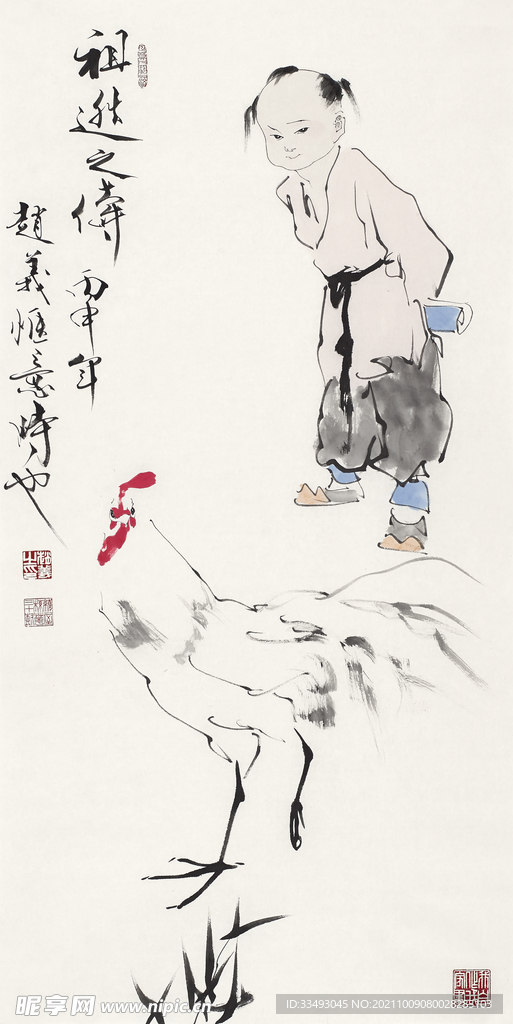 祖逖之儔 丙申年
趙義愜意時也
昵享网 www.nipic.cn
ID:33493045 NO:20211009080028285103